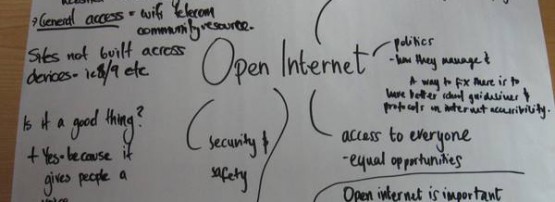 →General access = wifi telecom
community resource.
Sites not built across
devices- ie8/9 etc
Is it a good thing?
+ Yes- because it
gives people a
Open Internet
security &
safety
politics
- how they manage it
A way to fix there is to
have better school guidelines &
protocols on internet accessibility.
access to everyone
- equal opportunities
Open internet is important